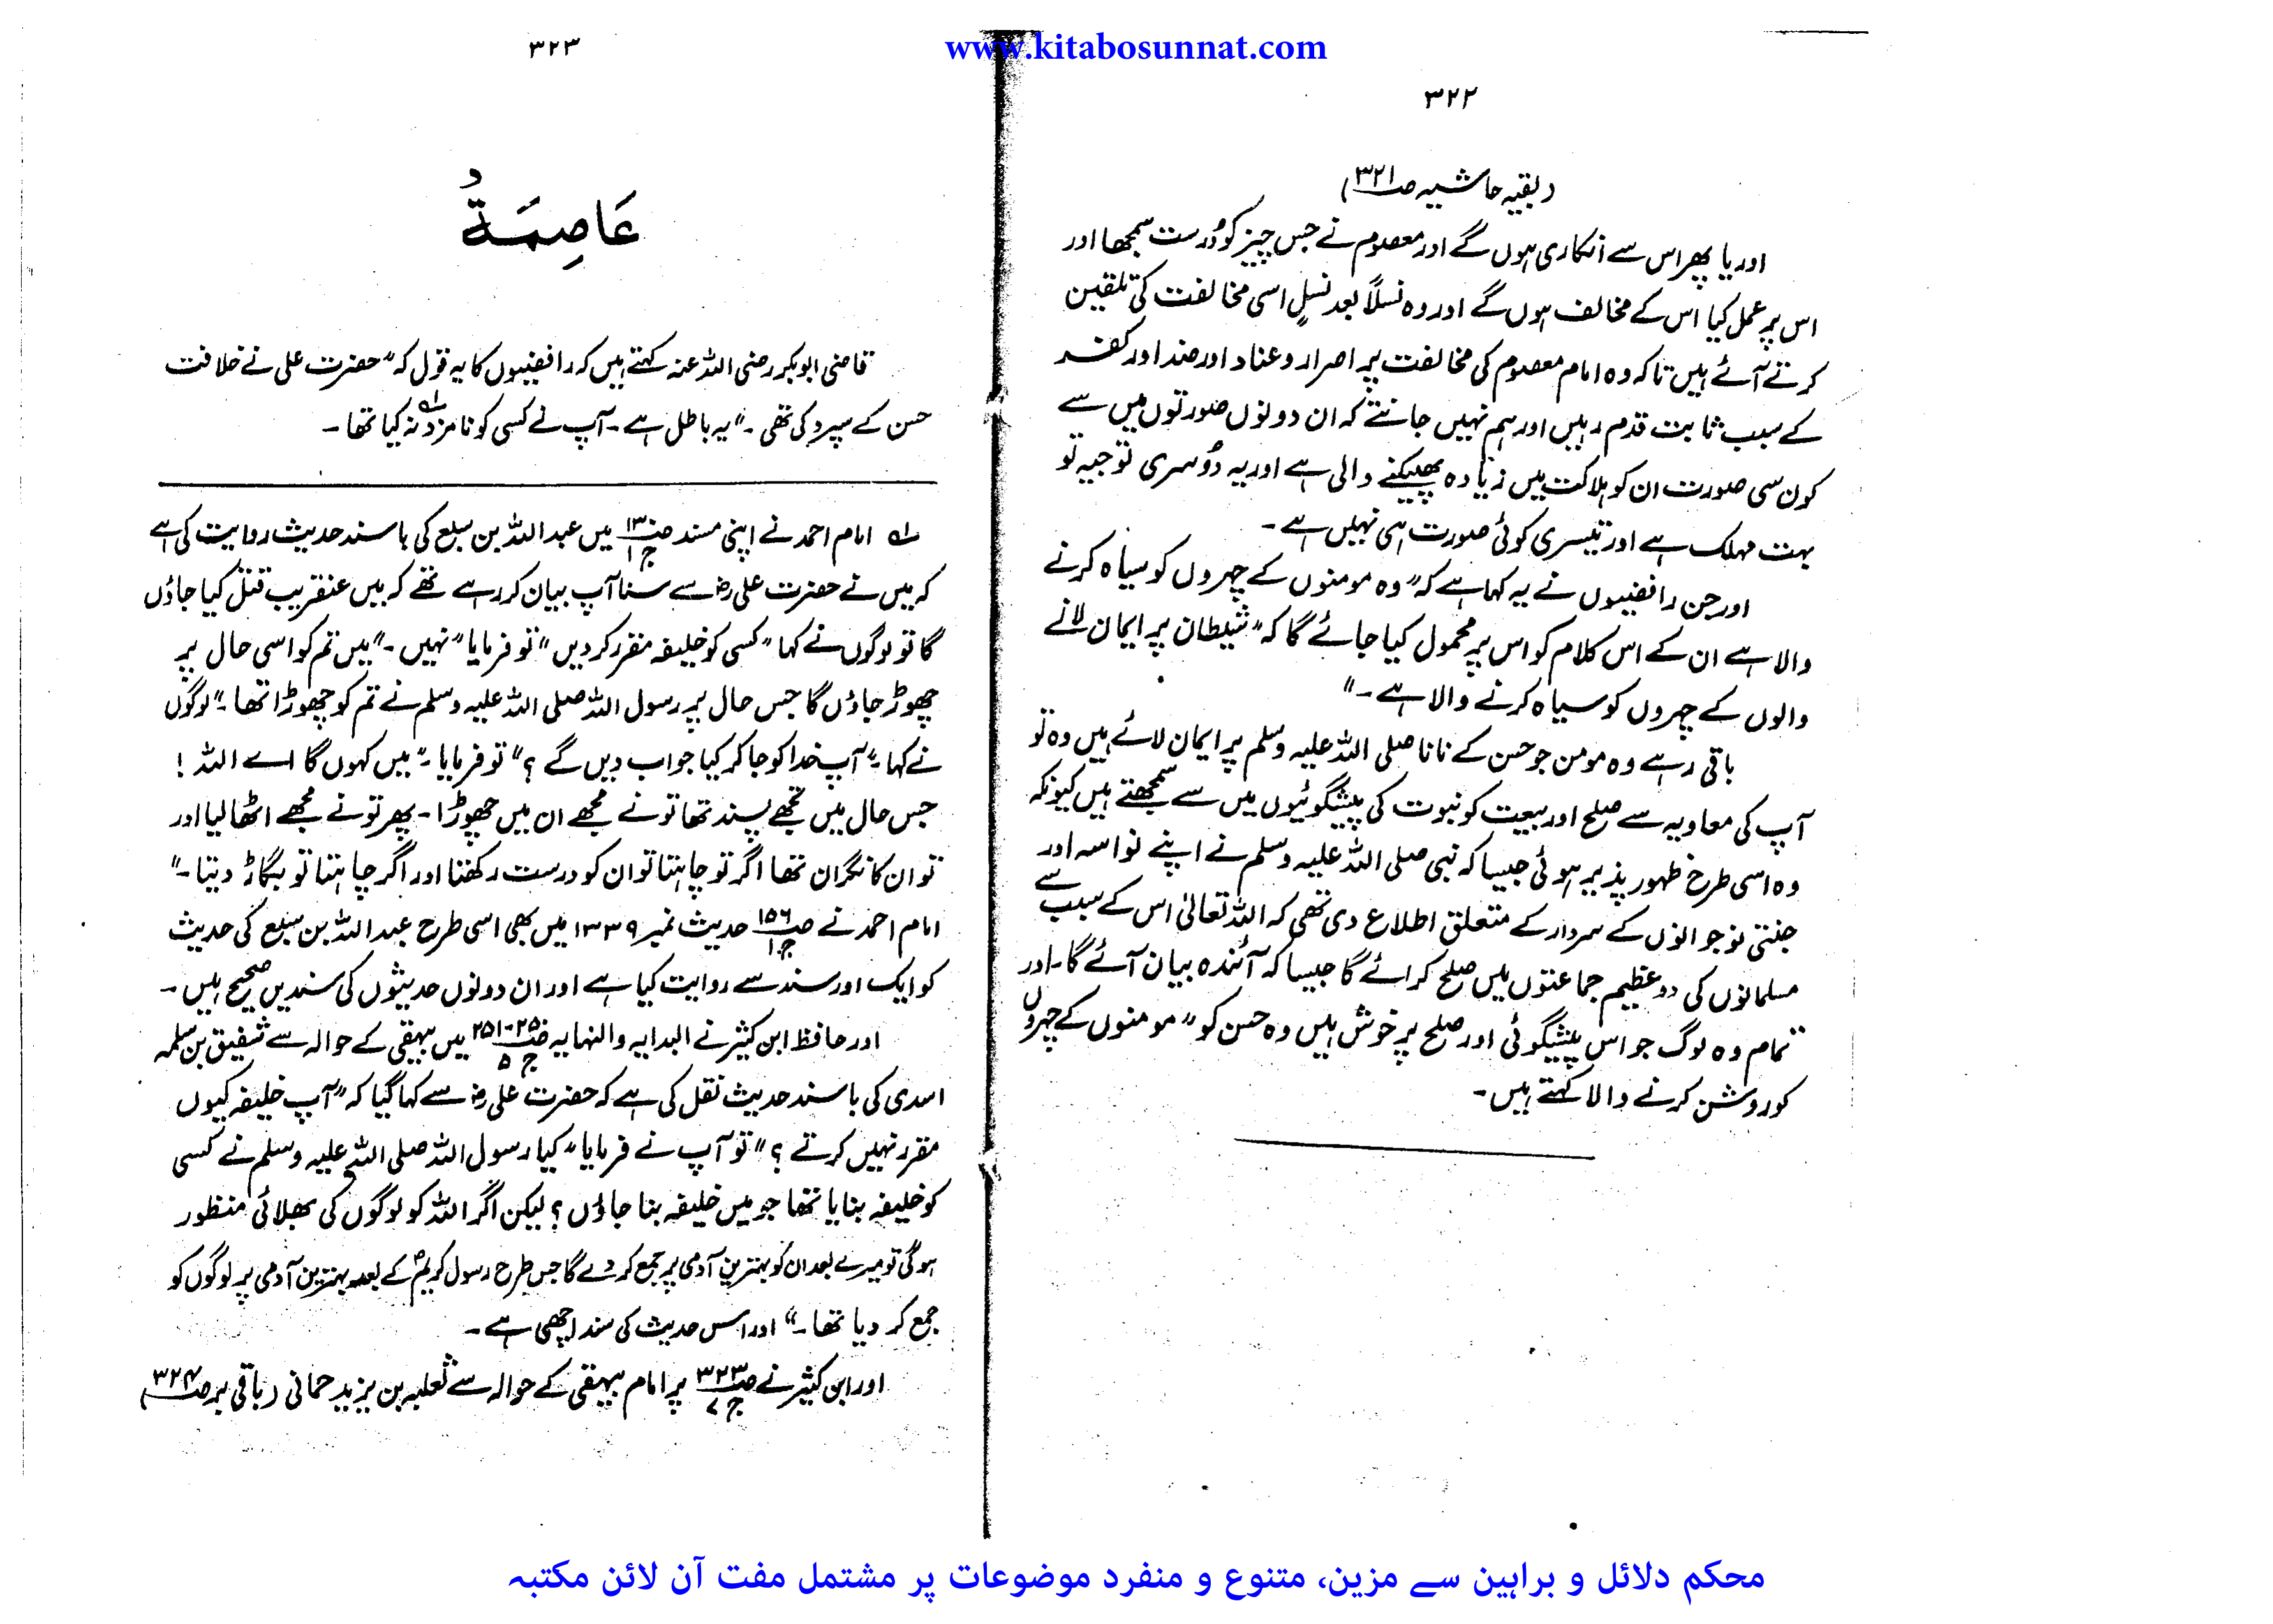 www.kitabosunnat.com
۳۲۲
(بقیہ حاشیہ صـ۳۲۱)
اور یا پھر اس سے انکاری ہوں گے اور معصوم نے جس چیز کو دُرست سمجھا اور
اس پر عمل کیا اس کے مخالف ہوں گے اور وہ نسلاً بعد نسلٍ اسی مخالفت کی تلقین
کرتے آئے ہیں تاکہ وہ امام معصوم کی مخالفت پر اصرار و عناد اور ضد اور کفر
کے سبب ثابت قدم رہیں اور ہم نہیں جانتے کہ ان دونوں صورتوں میں سے
کون سی صورت ان کو ہلاکت میں زیادہ پھینکنے والی ہے اور یہ دُوسری توجیہ تو
بہت مہلک ہے اور تیسری کوئی صورت ہی نہیں ہے۔
اور جن رافضیوں نے یہ کہا ہے کہ ”وہ مومنوں کے چہروں کو سیاہ کرنے
والا ہے ان کے اس کلام کو اس پر محمول کیا جائے گا کہ ”شیطان پر ایمان لانے
والوں کے چہروں کو سیاہ کرنے والا ہے۔“
باقی رہے وہ مومن جو حسن کے نانا صلی اللہ علیہ وسلم پر ایمان لائے ہیں وہ تو
آپ کی معاویہ سے صلح اور بیعت کو نبوت کی پیشگوئیوں میں سے سمجھتے ہیں کیونکہ
وہ اسی طرح ظہور پذیر ہوئی جیسا کہ نبی صلی اللہ علیہ وسلم نے اپنے نواسہ اور
جنتی نوجوانوں کے سردار کے متعلق اطلاع دی تھی کہ اللہ تعالیٰ اس کے سبب سے
مسلمانوں کی دو عظیم جماعتوں میں صلح کرائے گا جیسا کہ آئندہ بیان آئے گا۔ اور
تمام وہ لوگ جو اس پیشگوئی اور صلح پر خوش ہیں وہ حسن کو ”مومنوں کے چہروں
کو روشن کرنے والا کہتے ہیں۔
۳۲۳
عَاصِمَةٌ
قاضی ابوبکر رضی اللہ عنہ کہتے ہیں کہ رافضیوں کا یہ قول کہ ”حضرت علی نے خلافت
حسن کے سپرد کی تھی۔“ یہ باطل ہے۔ آپ نے کسی کو نامزد نہ کیا تھا۔ ؂۱
؂۱ امام احمد نے اپنی مسند صـ۱۳ ج۱ میں عبداللہ بن سبع کی باسند حدیث روایت کی ہے
کہ میں نے حضرت علی رضؓ سے سنا آپ بیان کر رہے تھے کہ میں عنقریب قتل کیا جاؤں
گا تو لوگوں نے کہا ”کسی کو خلیفہ مقرر کر دیں“ تو فرمایا ”نہیں۔“ میں تم کو اسی حال پر
چھوڑ جاؤں گا جس حال پر رسول اللہ صلی اللہ علیہ وسلم نے تم کو چھوڑا تھا۔“ لوگوں
نے کہا۔ ”آپ خدا کو جا کر کیا جواب دیں گے؟“ تو فرمایا۔ ”میں کہوں گا اے اللہ!
جس حال میں تجھے پسند تھا تو نے مجھے ان میں چھوڑا۔ پھر تو نے مجھے اٹھا لیا اور
تو ان کا نگران تھا اگر تو چاہتا تو ان کو درست رکھتا اور اگر چاہتا تو بگاڑ دیتا۔“
امام احمد نے صـ۱۵۶ ج۱ حدیث نمبر ۱۳۳۹ میں بھی اسی طرح عبداللہ بن سبع کی حدیث
کو ایک اور سند سے روایت کیا ہے اور ان دونوں حدیثوں کی سندیں صحیح ہیں۔
اور حافظ ابن کثیر نے البدایہ والنہایہ صـ۲۵۰-۲۵۱ ج۵ میں بیہقی کے حوالہ سے شفیق بن سلمہ
اسدی کی باسند حدیث نقل کی ہے کہ حضرت علی رضؓ سے کہا گیا کہ ”آپ خلیفہ کیوں
مقرر نہیں کرتے؟“ تو آپ نے فرمایا ”کیا رسول اللہ صلی اللہ علیہ وسلم نے کسی
کو خلیفہ بنایا تھا جو میں خلیفہ بنا جاؤں؟ لیکن اگر اللہ کو لوگوں کی بھلائی منظور
ہو گی تو میرے بعد ان کو بہترین آدمی پر جمع کر دے گا جس طرح رسول کریمؐ کے بعد بہترین آدمی پر لوگوں کو
جمع کر دیا تھا۔“ اور اس حدیث کی سند اچھی ہے۔
اور ابن کثیر نے صـ۳۲۳ ج۷ پر امام بیہقی کے حوالہ سے ثعلبہ بن یزید حمانی (باقی بر صـ۳۲۴)
محکم دلائل و براہین سے مزین، متنوع و منفرد موضوعات پر مشتمل مفت آن لائن مکتبہ